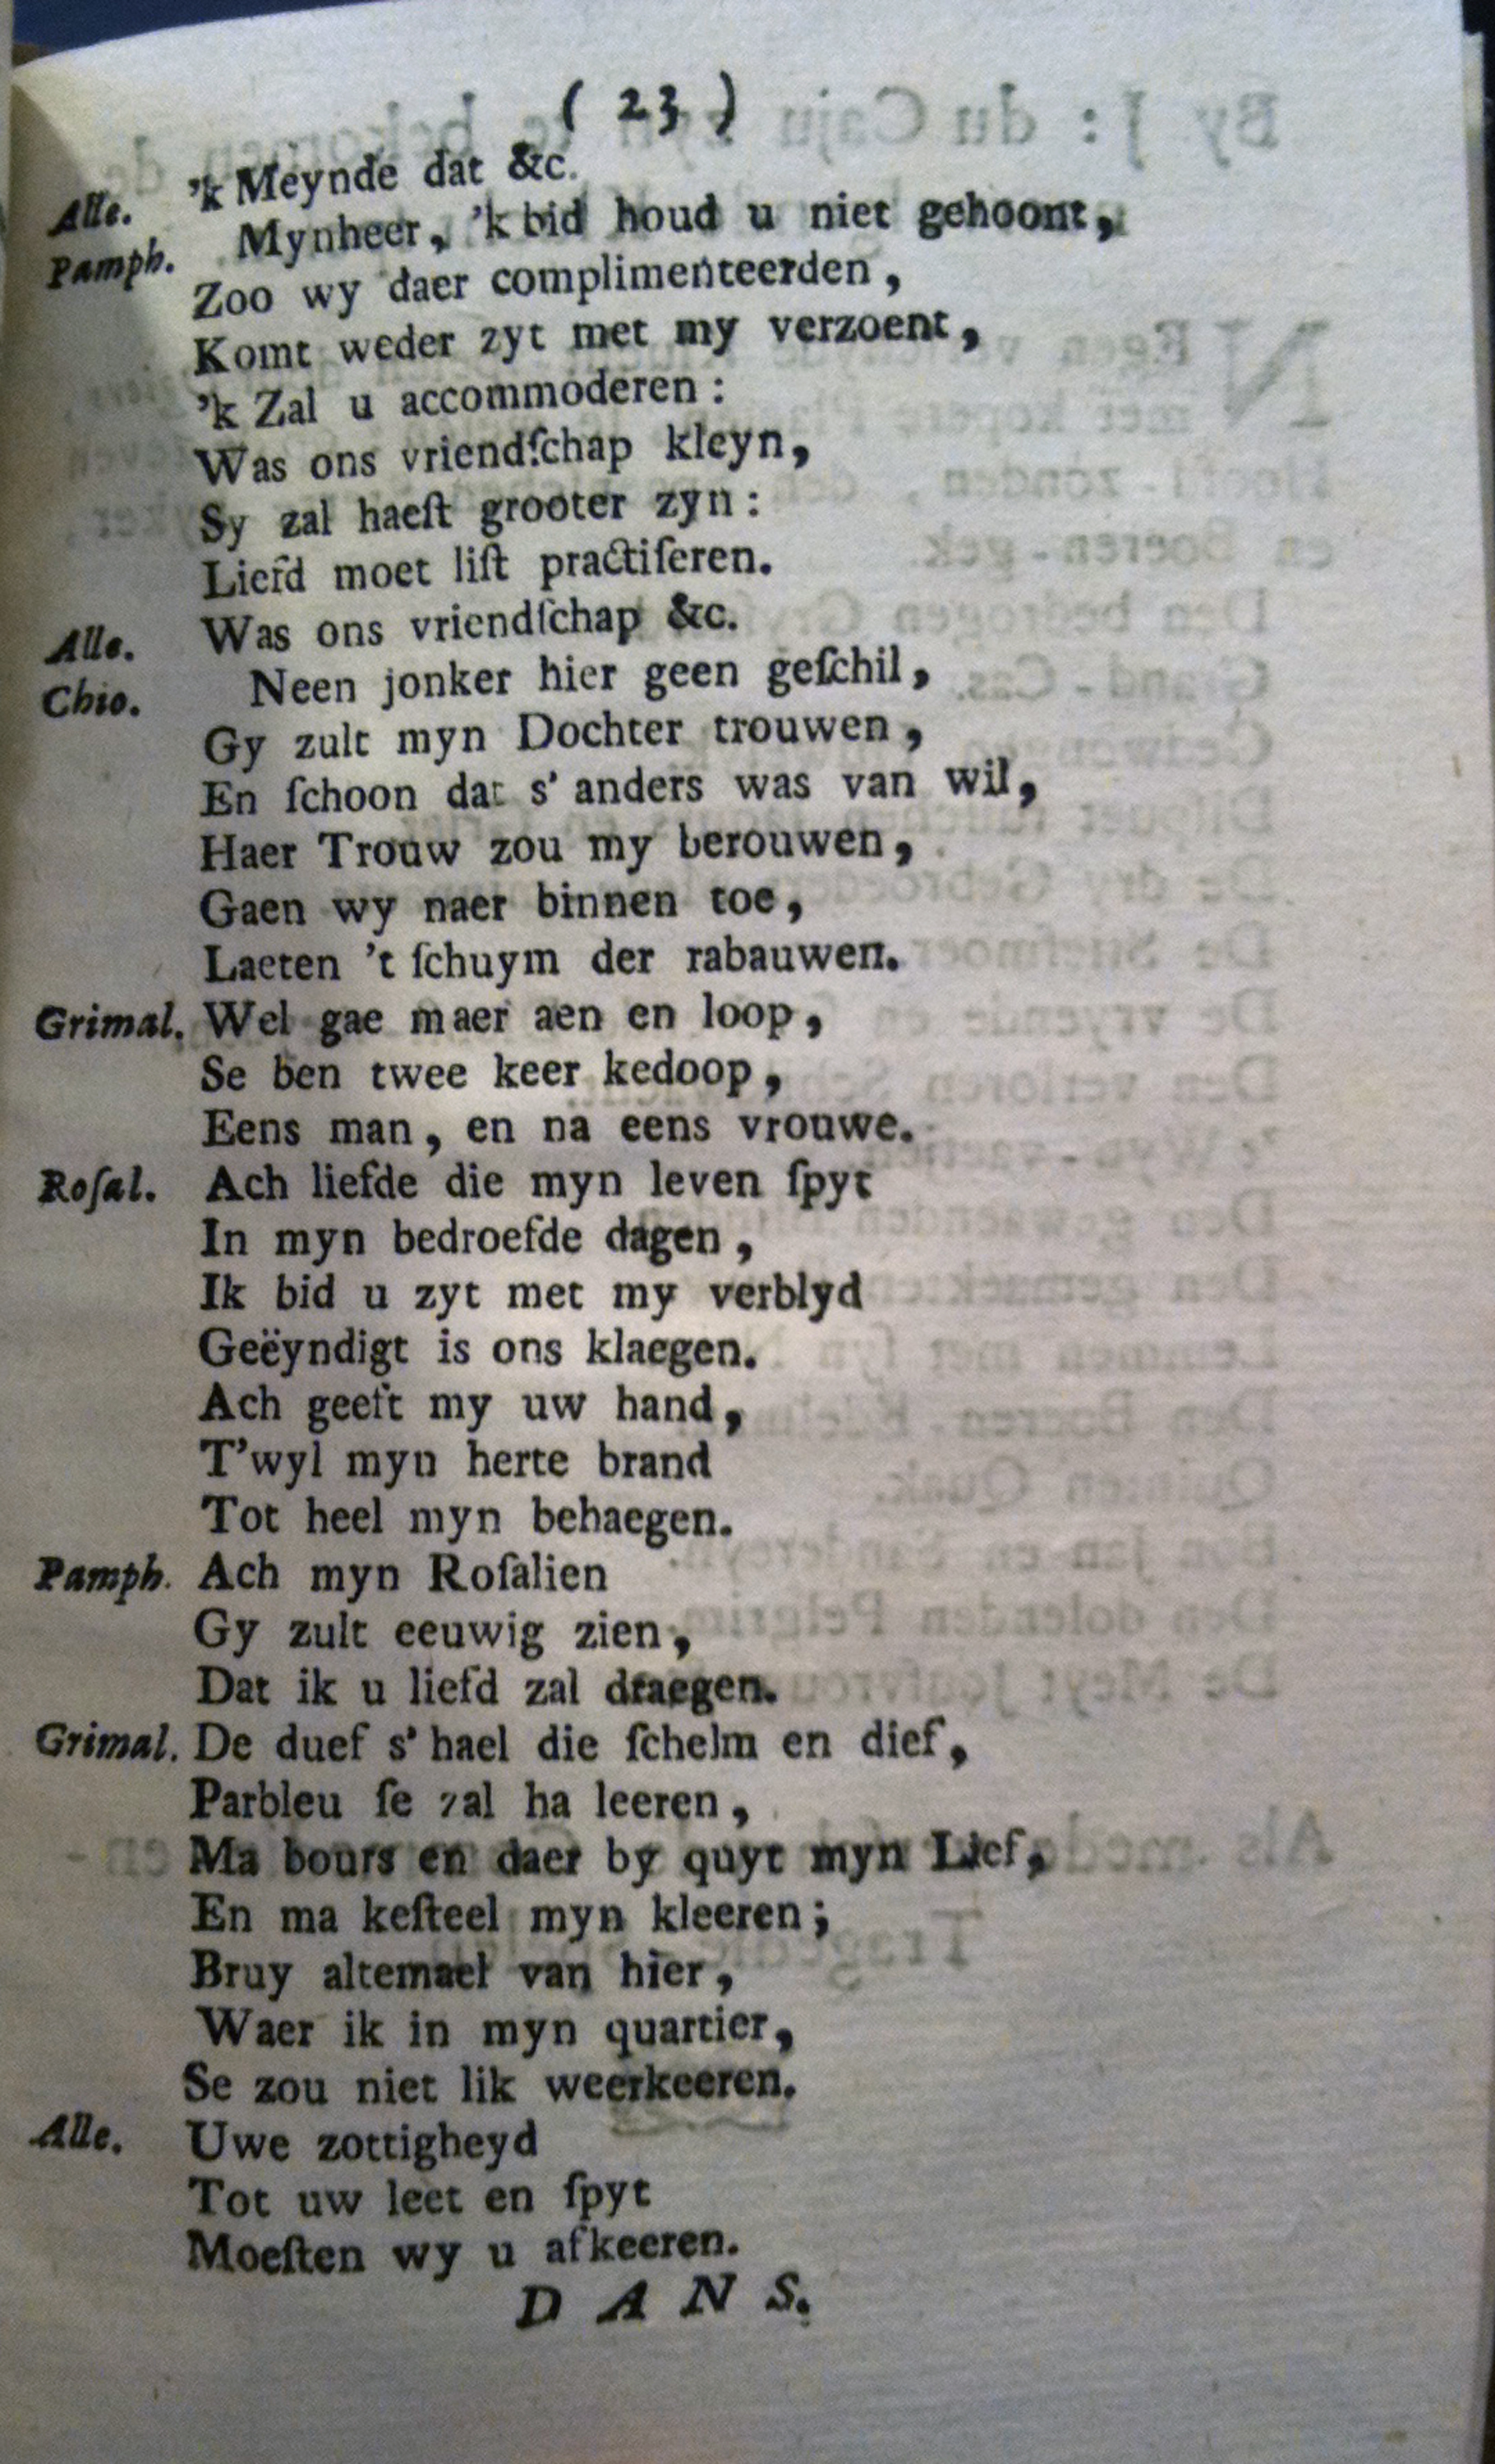 ( 23 )
Alle. 'k Meynde dat &c.
Pamph. Mynheer, 'k bid houd u niet gehoont,
Zoo wy daer complimenteerden,
Komt weder zyt met my verzoent,
'k Zal u accommoderen:
Was ons vriendſchap kleyn,
Sy zal haeſt grooter zyn:
Liefd moet liſt practiſeren.
Alle. Was ons vriendſchap &c.
Chio. Neen jonker hier geen geſchil,
Gy zult myn Dochter trouwen,
En ſchoon dat s' anders was van wil,
Haer Trouw zou my berouwen,
Gaen wy naer binnen toe,
Laeten 't ſchuym der rabauwen.
Grimal. Wel gae maer aen en loop,
Se ben twee keer kedoop,
Eens man, en na eens vrouwe.
Roſal. Ach liefde die myn leven ſpyt
In myn bedroefde dagen,
Ik bid u zyt met my verblyd
Geëyndigt is ons klaegen.
Ach geeft my uw hand,
T'wyl myn herte brand
Tot heel myn behaegen.
Pamph. Ach myn Roſalien
Gy zult eeuwig zien,
Dat ik u liefd zal draegen.
Grimal. De duef s' hael die ſchelm en dief,
Parbleu ſe zal ha leeren,
Ma bours en daer by quyt myn Lief,
En ma keſteel myn kleeren;
Bruy altemael van hier,
Waer ik in myn quartier,
Se zou niet lik weerkeeren.
Alle. Uwe zottigheyd
Tot uw leet en ſpyt
Moeſten wy u afkeeren.
DANS.